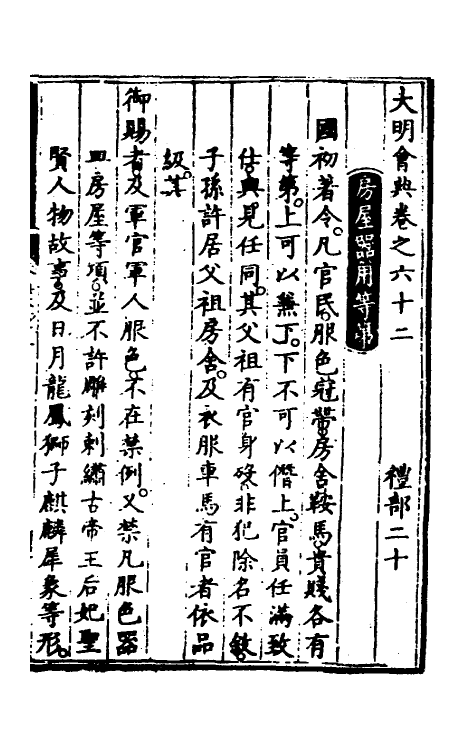 大明會典卷之六十二　禮部二十
房屋器用等第
國初著令。凡官民服色冠帶房舍鞍馬。貴賤各有
等第。上可以兼下。下不可以僭上。官員任滿致
仕。與見任同。其父祖有官身歿。非犯除名不敘。
子孫許居父祖房舍。及衣服車馬。有官者依品
級。其
御賜者及軍官軍人服色。不在禁例。又禁凡服色器
皿房屋等項。並不許雕刻刺繡古帝王后妃聖
賢人物故事。及日月龍鳳獅子麒麟犀象等形。